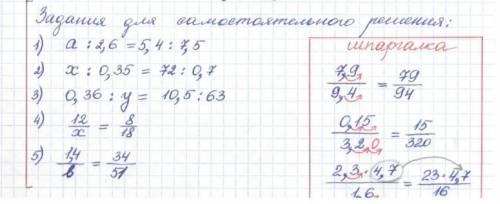 Задания для самостоятельного решения:
1) a : 2,6 = 5,4 : 7,5
2) x : 0,35 = 72 : 0,7
3) 0,36 : y = 10,5 : 63
4) 12/x = 8/18
5) 1,4/в = 34/51
шпаргалка
7,9/9,4 = 79/94
0,15/3,20 = 15/320
2,3·4,7/1,6 = 23·4,7/16